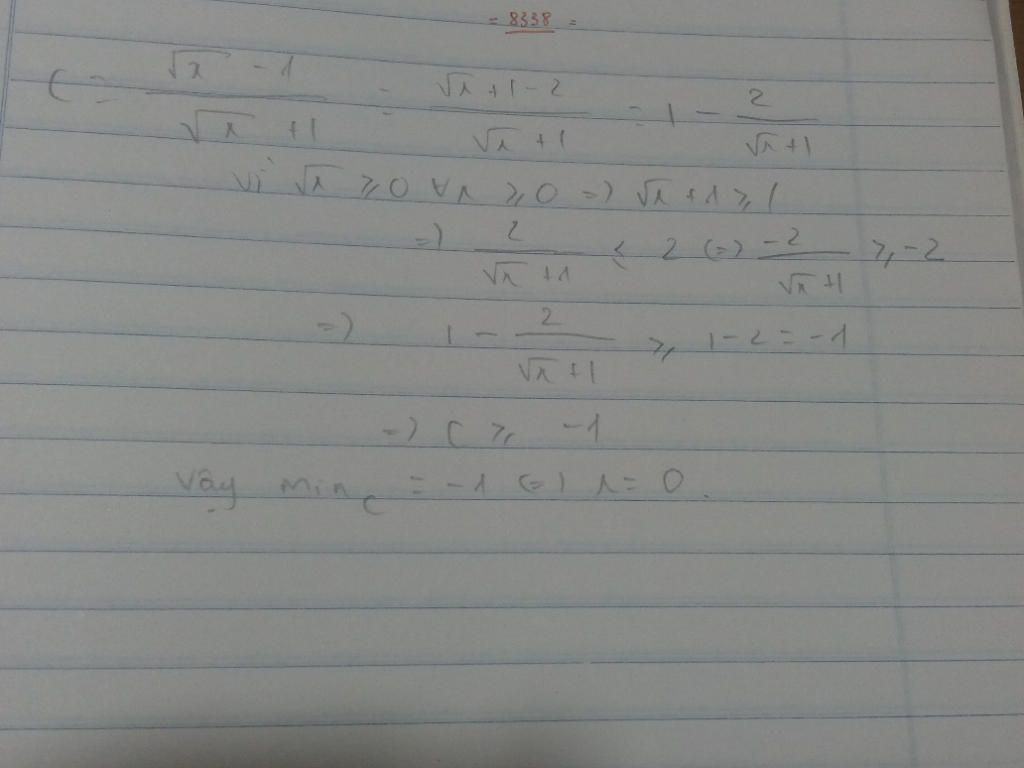 = 8338 =
C = (√x - 1)/(√x + 1) = (√x + 1 - 2)/(√x + 1) = 1 - 2/(√x + 1)
vì √x ≥ 0 ∀x ≥ 0 => √x + 1 ≥ 1
=> 2/(√x + 1) ≤ 2 (=) -2/(√x + 1) ≥ -2
=> 1 - 2/(√x + 1) ≥ 1 - 2 = -1
=> C ≥ -1
Vậy min C = -1 (=) x = 0.